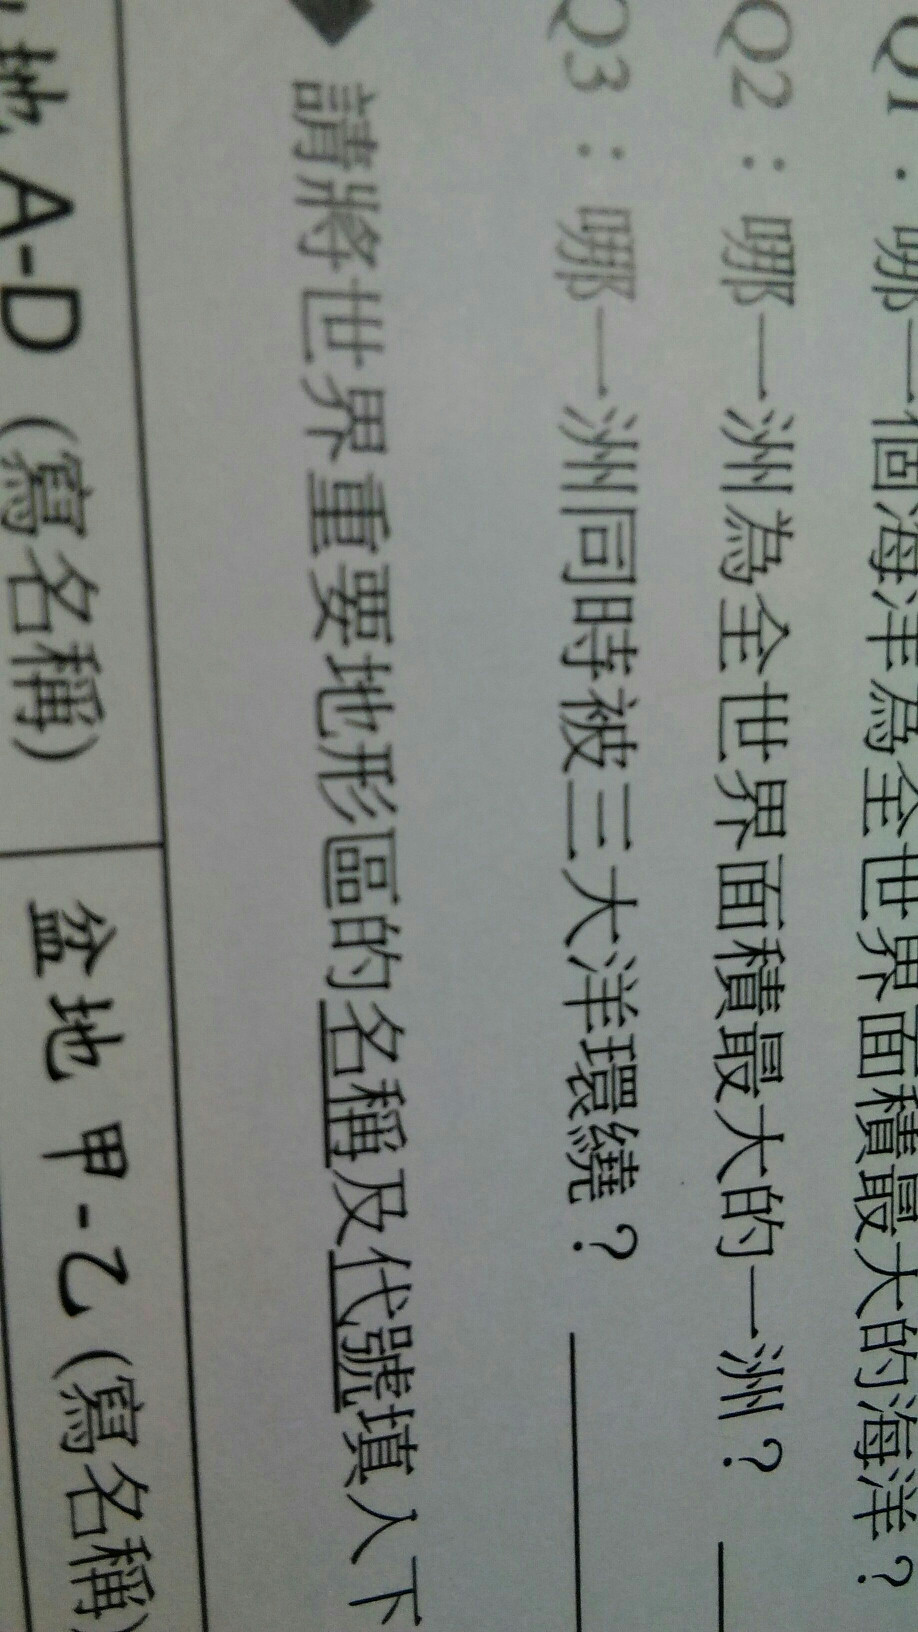 Q1：哪一個海洋為全世界面積最大的海洋？
Q2：哪一洲為全世界面積最大的一洲？
Q3：哪一洲同時被三大洋環繞？
◆請將世界重要地形區的名稱及代號填入下
地 A-D（寫名稱） 盆地 甲-乙(寫名稱)